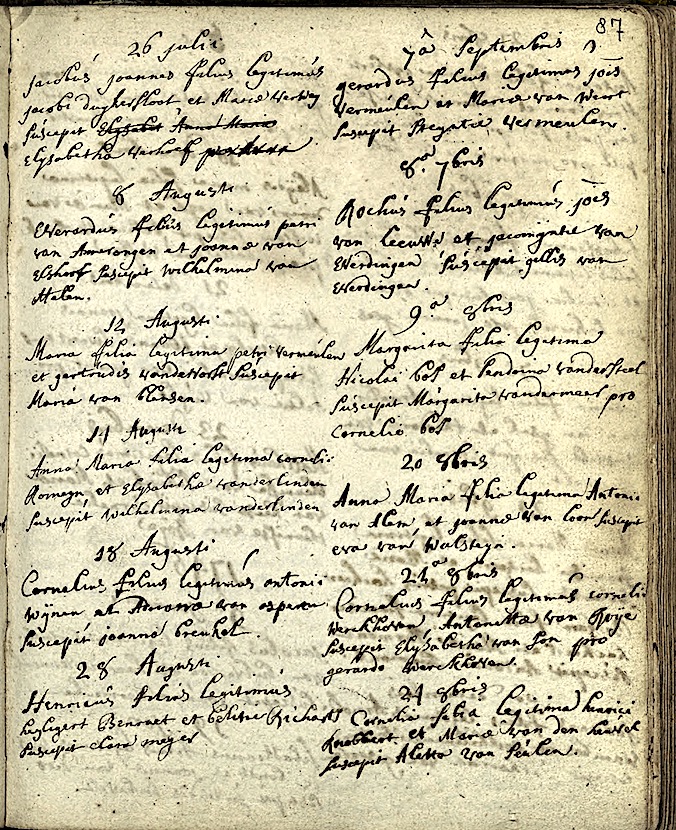 87
26 julii
Jacobus joannes filius legitimus
jacobi duykersloot et Mariæ Verwey
suscepit Elysabet Anna Maria
Elysabetha Verhoef
8 Augusti
Everardus filius legitimus petri
van Amerongen et joannæ van
Elshorf suscepit wilhelmina van
Halen.
12 Augusti
Maria filia legitima petri Vermeulen
et gertrudis suscepit
Maria van
14 Augusti
Anna Maria filia legitima cornelii
Romeyn, et Elysabetha vanderlinden
suscepit wilhelmina vanderlinden
18 Augusti
Cornelius filius legitimus antonii
wijnen et van
suscepit joanna breukel.
28 Augusti
Henricus filius legitimus
Benraet et Richarts
suscepit clara meyer
7a Septembris
gerardus filius legitimus jois
Vermeulen et Mariæ van Weert
suscepit Vermeulen.
8a 7bris
Rochus filius legitimus jois
van Leeuwe et van
Everdingen suscepit gellis van
Everdingen.
9a 8bris
Margarita filia legitima
Nicolai bos et vandersteel
suscepit Margarita vandermeer pro
Cornelio bos
20 8bris
Anna Maria filia legitima Antonii
van Alen, et joannæ van Loon suscepit
eva van
21a 8bris
Cornelius filius legitimus cornelii
Werckhoven Antonetta van Roije
suscepit Elysabetha van pro
gerardo Werckhoven.
24 8bris
Cornelia filia legitima henrici
et Mariæ van den heuvel
suscepit Aletta van